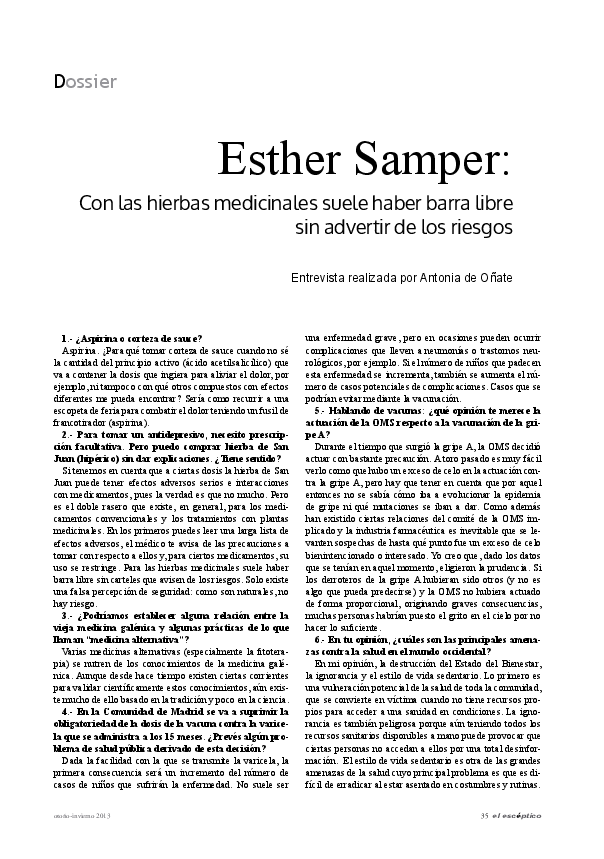 Dossier
Esther Samper:
Con las hierbas medicinales suele haber barra libre
sin advertir de los riesgos
Entrevista realizada por Antonia de Oñate
1.- ¿Aspirina o corteza de sauce?
Aspirina. ¿Para qué tomar corteza de sauce cuando no sé
la cantidad del principio activo (ácido acetilsalicílico) que
va a contener la dosis que ingiera para aliviar el dolor, por
ejemplo, ni tampoco con qué otros compuestos con efectos
diferentes me pueda encontrar? Sería como recurrir a una
escopeta de feria para combatir el dolor teniendo un fusil de
francotirador (aspirina).
2.- Para tomar un antidepresivo, necesito prescrip-
ción facultativa. Pero puedo comprar hierba de San
Juan (hipérico) sin dar explicaciones. ¿Tiene sentido?
Si tenemos en cuenta que a ciertas dosis la hierba de San
Juan puede tener efectos adversos serios e interacciones
con medicamentos, pues la verdad es que no mucho. Pero
es el doble rasero que existe, en general, para los medi-
camentos convencionales y los tratamientos con plantas
medicinales. En los primeros puedes leer una larga lista de
efectos adversos, el médico te avisa de las precauciones a
tomar con respecto a ellos y, para ciertos medicamentos, su
uso se restringe. Para las hierbas medicinales suele haber
barra libre sin carteles que avisen de los riesgos. Solo existe
una falsa percepción de seguridad: como son naturales, no
hay riesgo.
3.- ¿Podríamos establecer alguna relación entre la
vieja medicina galénica y algunas prácticas de lo que
llaman “medicina alternativa”?
Varias medicinas alternativas (especialmente la fitotera-
pia) se nutren de los conocimientos de la medicina galé-
nica. Aunque desde hace tiempo existen ciertas corrientes
para validar científicamente estos conocimientos, aún exis-
te mucho de ello basado en la tradición y poco en la ciencia.
4.- En la Comunidad de Madrid se va a suprimir la
obligatoriedad de la dosis de la vacuna contra la varice-
la que se administra a los 15 meses. ¿Prevés algún pro-
blema de salud pública derivado de esta decisión?
Dada la facilidad con la que se transmite la varicela, la
primera consecuencia será un incremento del número de
casos de niños que sufrirán la enfermedad. No suele ser
una enfermedad grave, pero en ocasiones pueden ocurrir
complicaciones que lleven a neumonías o trastornos neu-
rológicos, por ejemplo. Si el número de niños que padecen
esta enfermedad se incrementa, también se aumenta el nú-
mero de casos potenciales de complicaciones. Casos que se
podrían evitar mediante la vacunación.
5.- Hablando de vacunas: ¿qué opinión te merece la
actuación de la OMS respecto a la vacunación de la gri-
pe A?
Durante el tiempo que surgió la gripe A, la OMS decidió
actuar con bastante precaución. A toro pasado es muy fácil
verlo como que hubo un exceso de celo en la actuación con-
tra la gripe A, pero hay que tener en cuenta que por aquel
entonces no se sabía cómo iba a evolucionar la epidemia
de gripe ni qué mutaciones se iban a dar. Como además
han existido ciertas relaciones del comité de la OMS im-
plicado y la industria farmacéutica es inevitable que se le-
vanten sospechas de hasta qué punto fue un exceso de celo
bienintencionado o interesado. Yo creo que, dado los datos
que se tenían en aquel momento, eligieron la prudencia. Si
los derroteros de la gripe A hubieran sido otros (y no es
algo que pueda predecirse) y la OMS no hubiera actuado
de forma proporcional, originando graves consecuencias,
muchas personas habrían puesto el grito en el cielo por no
hacer lo suficiente.
6.- En tu opinión, ¿cuáles son las principales amena-
zas contra la salud en el mundo occidental?
En mi opinión, la destrucción del Estado del Bienestar,
la ignorancia y el estilo de vida sedentario. Lo primero es
una vulneración potencial de la salud de toda la comunidad,
que se convierte en víctima cuando no tiene recursos pro-
pios para acceder a una sanidad en condiciones. La igno-
rancia es también peligrosa porque aún teniendo todos los
recursos sanitarios disponibles a mano puede provocar que
ciertas personas no accedan a ellos por una total desinfor-
mación. El estilo de vida sedentario es otra de las grandes
amenazas de la salud cuyo principal problema es que es di-
fícil de erradicar al estar asentado en costumbres y rutinas.
otoño-invierno 2013
35 el escéptico